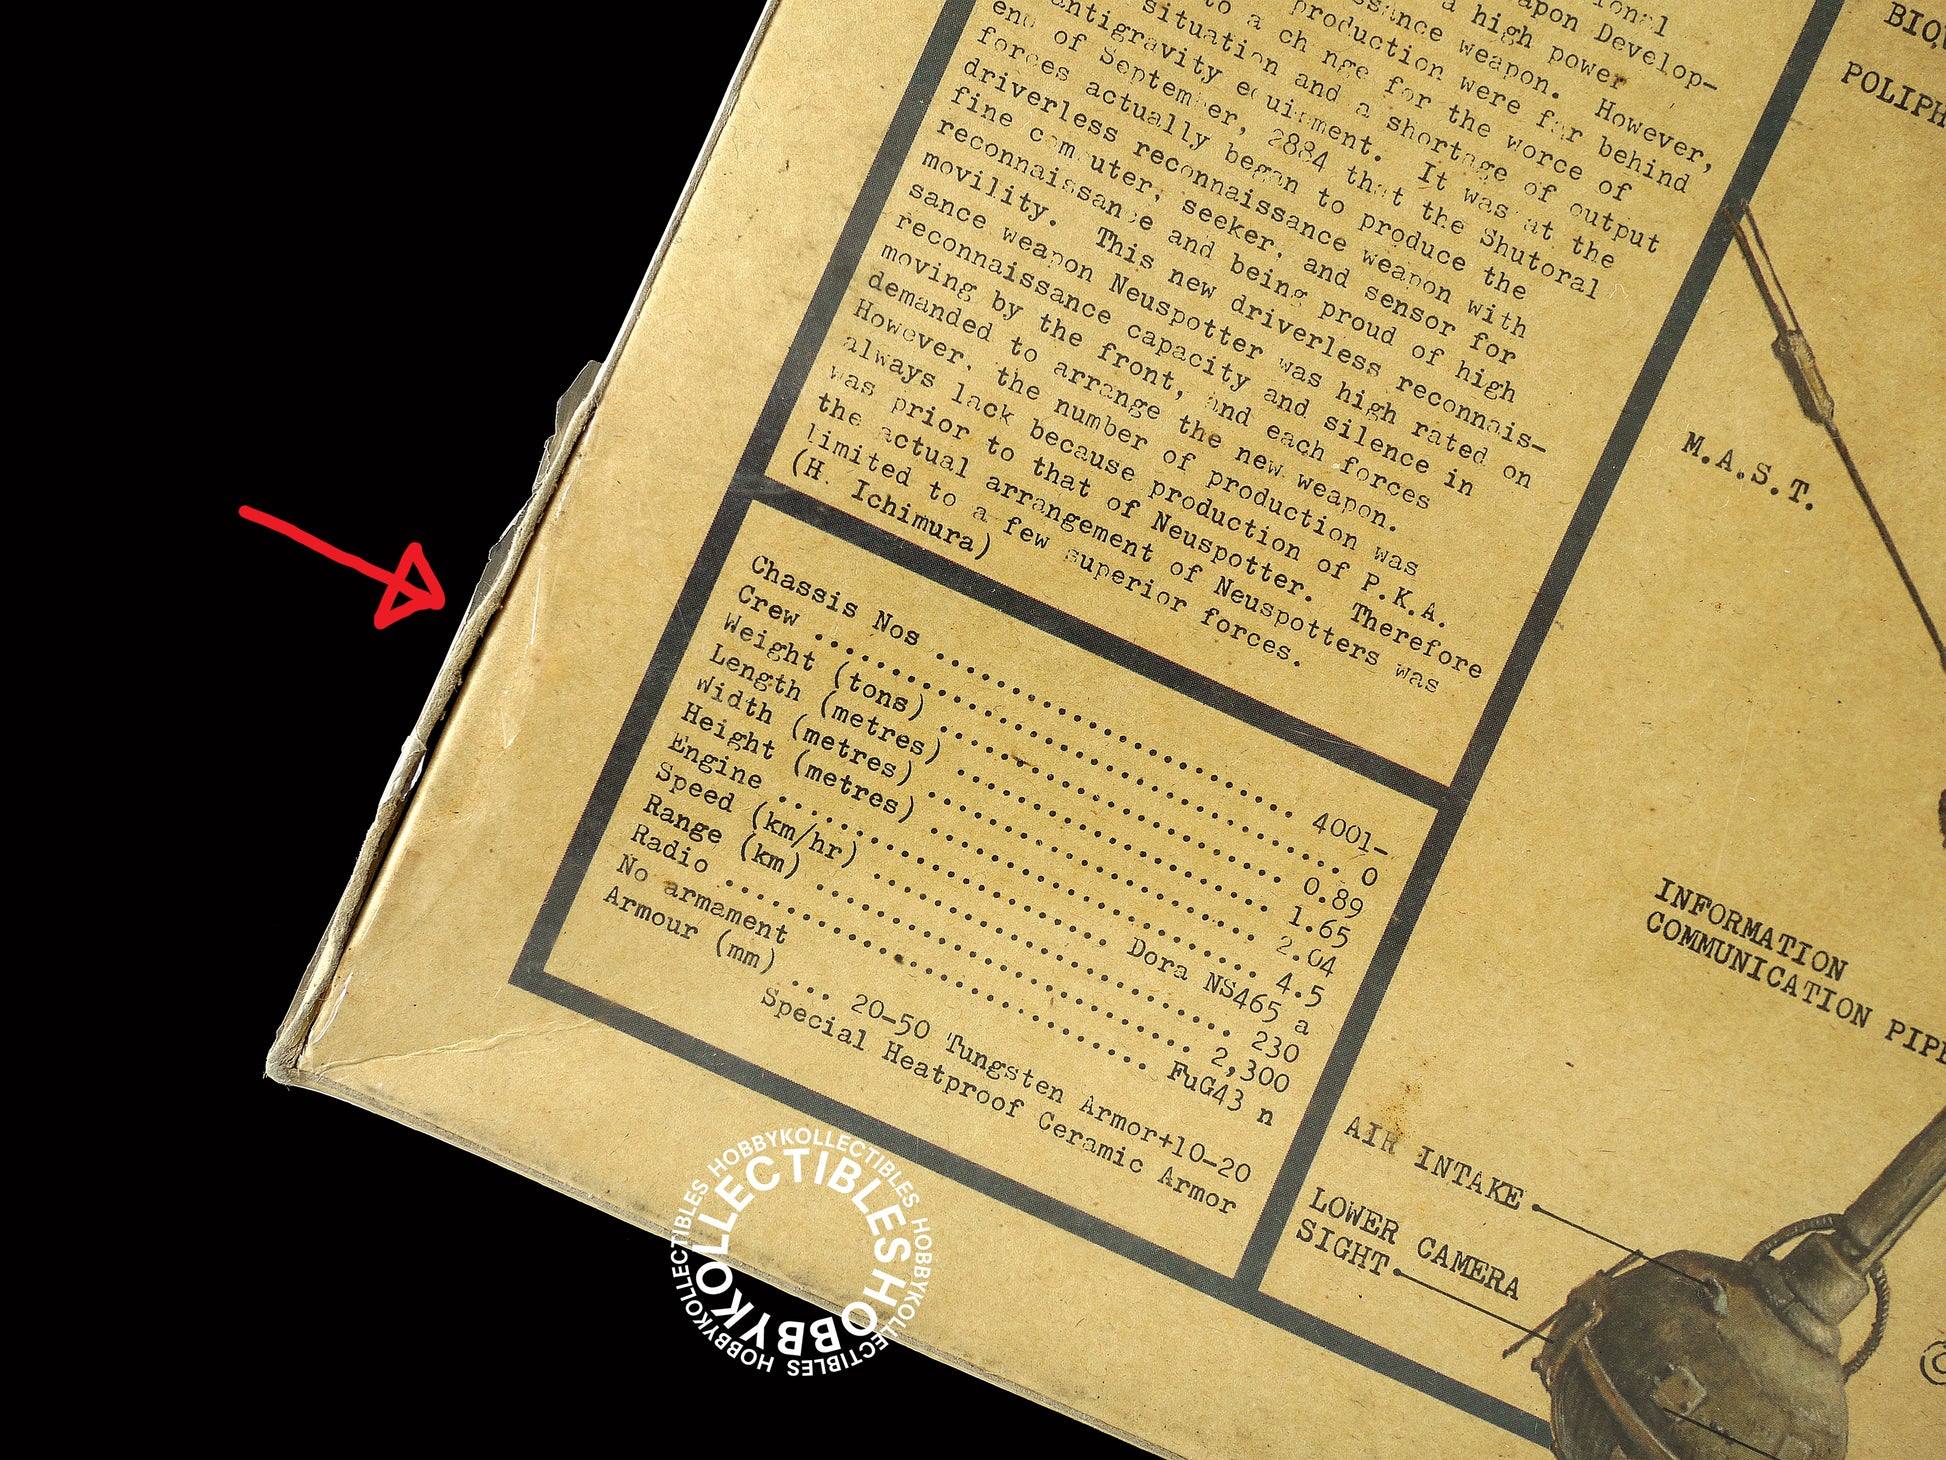 Develop-
a high power
weapon. However,
production were far behind
to a ch nge for the worce of
situation and a shortage of output
antigravity equipment. It was at the
end of September, 2884 that the Shutoral
forces actually began to produce the
driverless reconnaissance weapon with
fine computer, seeker, and sensor for
reconnaissance and being proud of high
movility. This new driverless reconnais-
sance weapon Neuspotter was high rated on
reconnaissance capacity and silence in
moving by the front, and each forces
demanded to arrange the new weapon.
However, the number of production was
always lack because production of P.K.A.
was prior to that of Neuspotter. Therefore
the actual arrangement of Neuspotters was
limited to a few superior forces.
(H. Ichimura)
Chassis Nos ........................ 4001-
Crew ................................... 0
Weight (tons) ....................... 0.89
Length (metres) ..................... 1.65
Width (metres) ...................... 2.04
Height (metres) ...................... 4.5
Engine ....................... Dora NS465 a
Speed (km/hr) ........................ 230
Range (km) ......................... 2,300
Radio ............................ FuG43 n
No armament
Armour (mm) ... 20-50 Tungsten Armor+10-20
Special Heatproof Ceramic Armor
M.A.S.T.
INFORMATION
COMMUNICATION PIPE
AIR INTAKE
LOWER CAMERA
SIGHT
©
HOBBYKOLLECTIBLES HOBBYKOLLECTIBLES HOBBYKOLLECTIBLES HOBBYKOLLECTIBLES
HOBBYKOLLECTIBLES